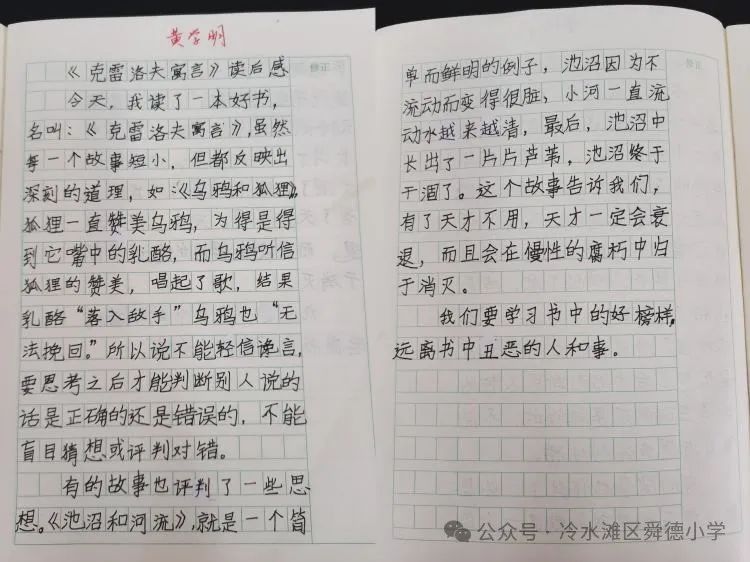 黄学明
《克雷洛夫寓言》读后感
今天，我读了一本好书，
名叫：《克雷洛夫寓言》，虽然
每一个故事短小，但都反映出
深刻的道理，如：《乌鸦和狐狸》。
狐狸一直赞美乌鸦，为得是得
到它嘴中的乳酪，而乌鸦听信
狐狸的赞美，唱起了歌，结果
乳酪“落入敌手”乌鸦也“无
法挽回。”所以说不能轻信谗言，
要思考之后才能判断别人说的
话是正确的还是错误的，不能
盲目猜想或评判对错。
有的故事也评判了一些思
想。《池沼和河流》，就是一个简
单而鲜明的例子，池沼因为不
流动而变得很脏，小河一直流
动水越来越清，最后，池沼中
长出了一片片芦苇，池沼终于
干涸了。这个故事告诉我们，
有了天才不用，天才一定会衰
退，而且会在慢性的腐朽中归
于消灭。
我们要学习书中的好榜样，
远离书中丑恶的人和事。
公众号·冷水滩区舜德小学